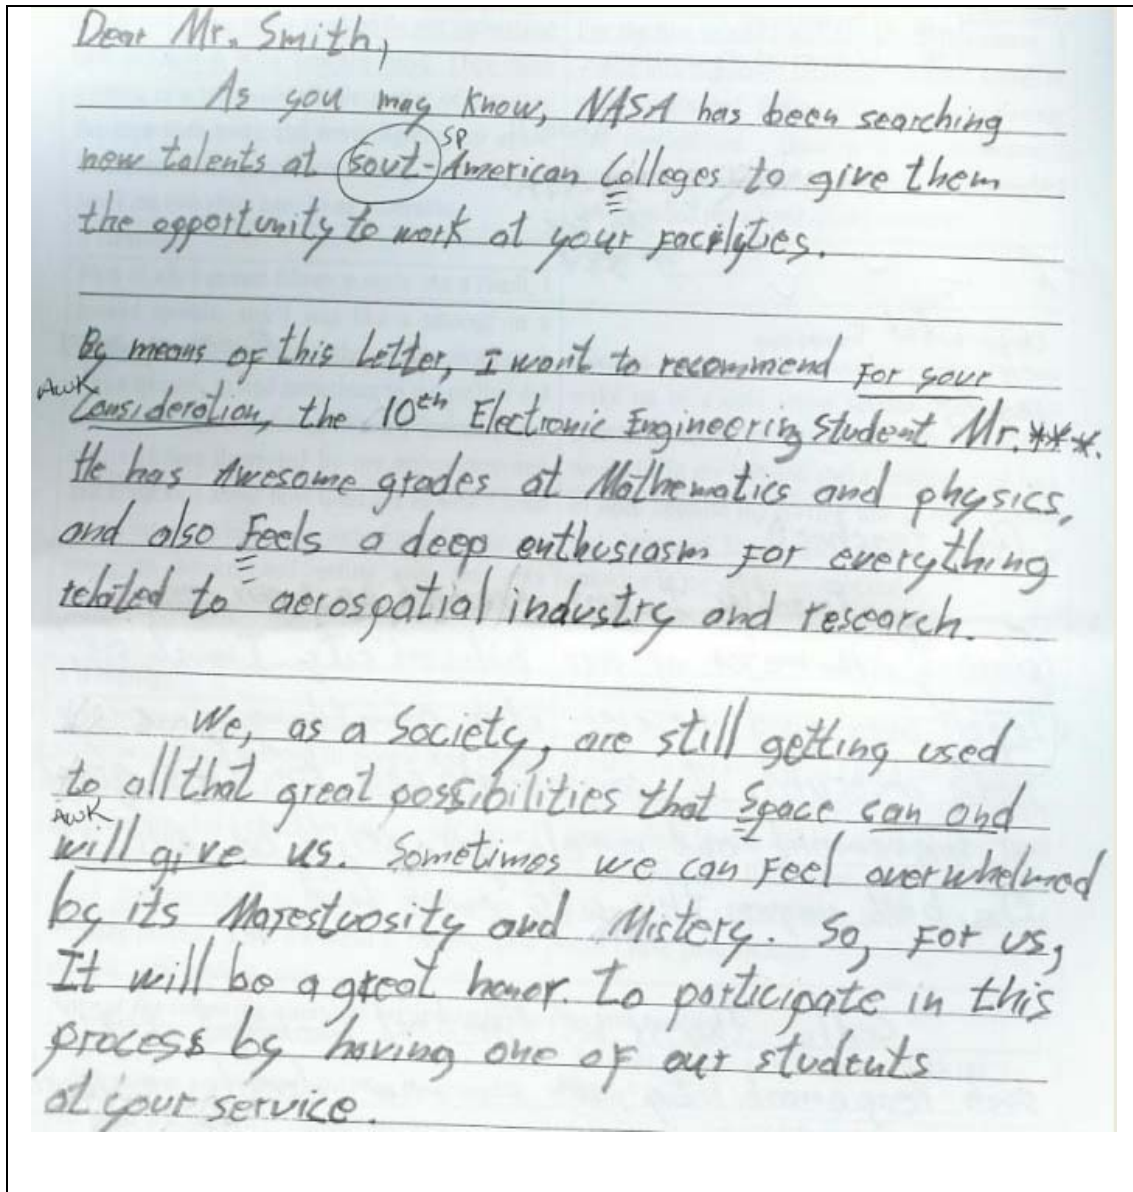 Dear Mr. Smith,
As you may know, NASA has been searching
SP
new talents at Sout-American Colleges to give them
the opportunity to work at your facilyties.
By means of this Letter, I want to recommend For your
Awk
Consideration, the 10th Electronic Engineering student Mr. ***.
He has Awesome grades at Mathematics and physics,
and also Feels a deep enthusiasm For everything
related to aerospatial industry and research.
We, as a Society, are still getting used
to all that great possibilities that Space can and
Awk
will give us. Sometimes we can Feel overwhelmed
by its Majestuosity and Mistery. So, For us,
It will be a great honor to participate in this
process by having one of our students
at your service.